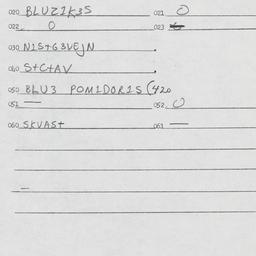 020 BLUZIK3S 021 O
022 O 023
030 NIST63VEJN
040 StCtAV
050 BLU3 POMIDORIS (420
051 — 052 O
060 SKVASt 061 —